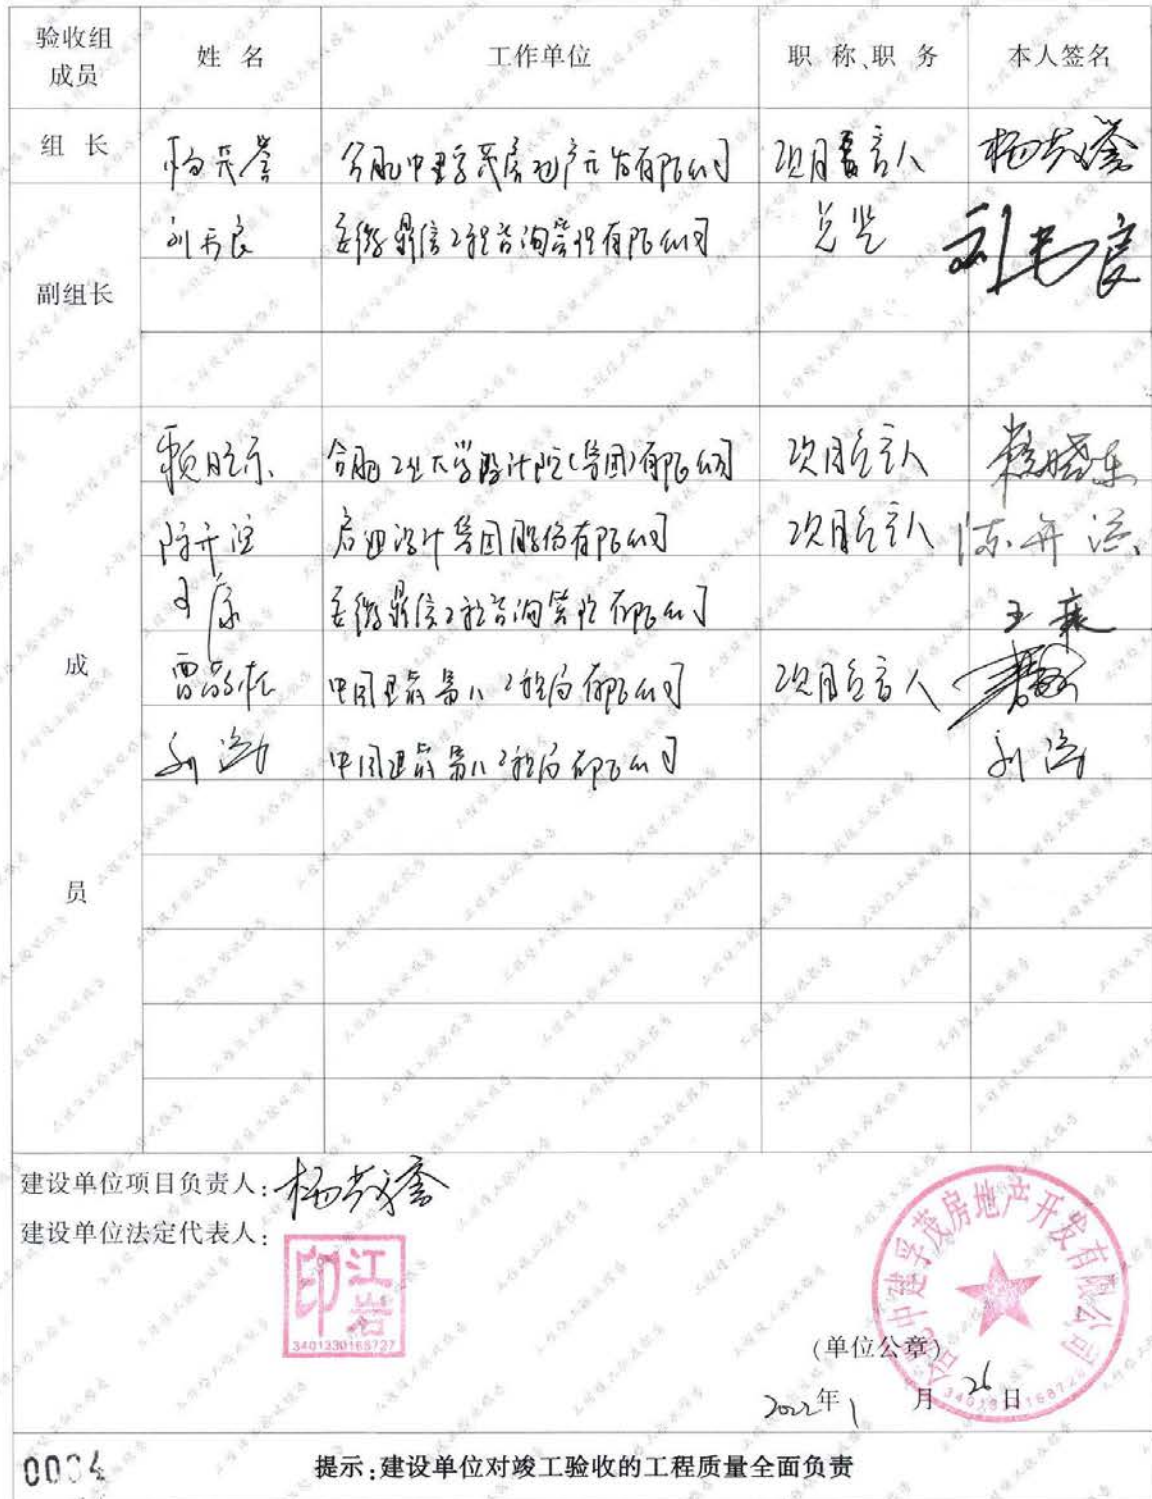 验收组成员 姓 名 工作单位 职 称、职 务 本人签名
组 长 杨茂誉 合肥中建孚茂房地产开发有限公司 项目负责人 杨茂誉
副组长 刘书良 安徽鼎信工程咨询管理有限公司 总监 刘书良
成员
赖晓东 合肥工业大学设计院(集团)有限公司 项目负责人 赖晓东
陈开 启迪设计集团股份有限公司 项目负责人 陈
王康 安徽鼎信工程咨询管理有限公司 王康
雷 中国建筑第八工程局有限公司 项目负责人
刘涛 中国建筑第八工程局有限公司 刘涛
建设单位项目负责人:杨茂誉
建设单位法定代表人:
江岩印
3401330168727
合肥中建孚茂房地产开发有限公司
(单位公章)
2022年1月26日
0034
提示:建设单位对竣工验收的工程质量全面负责